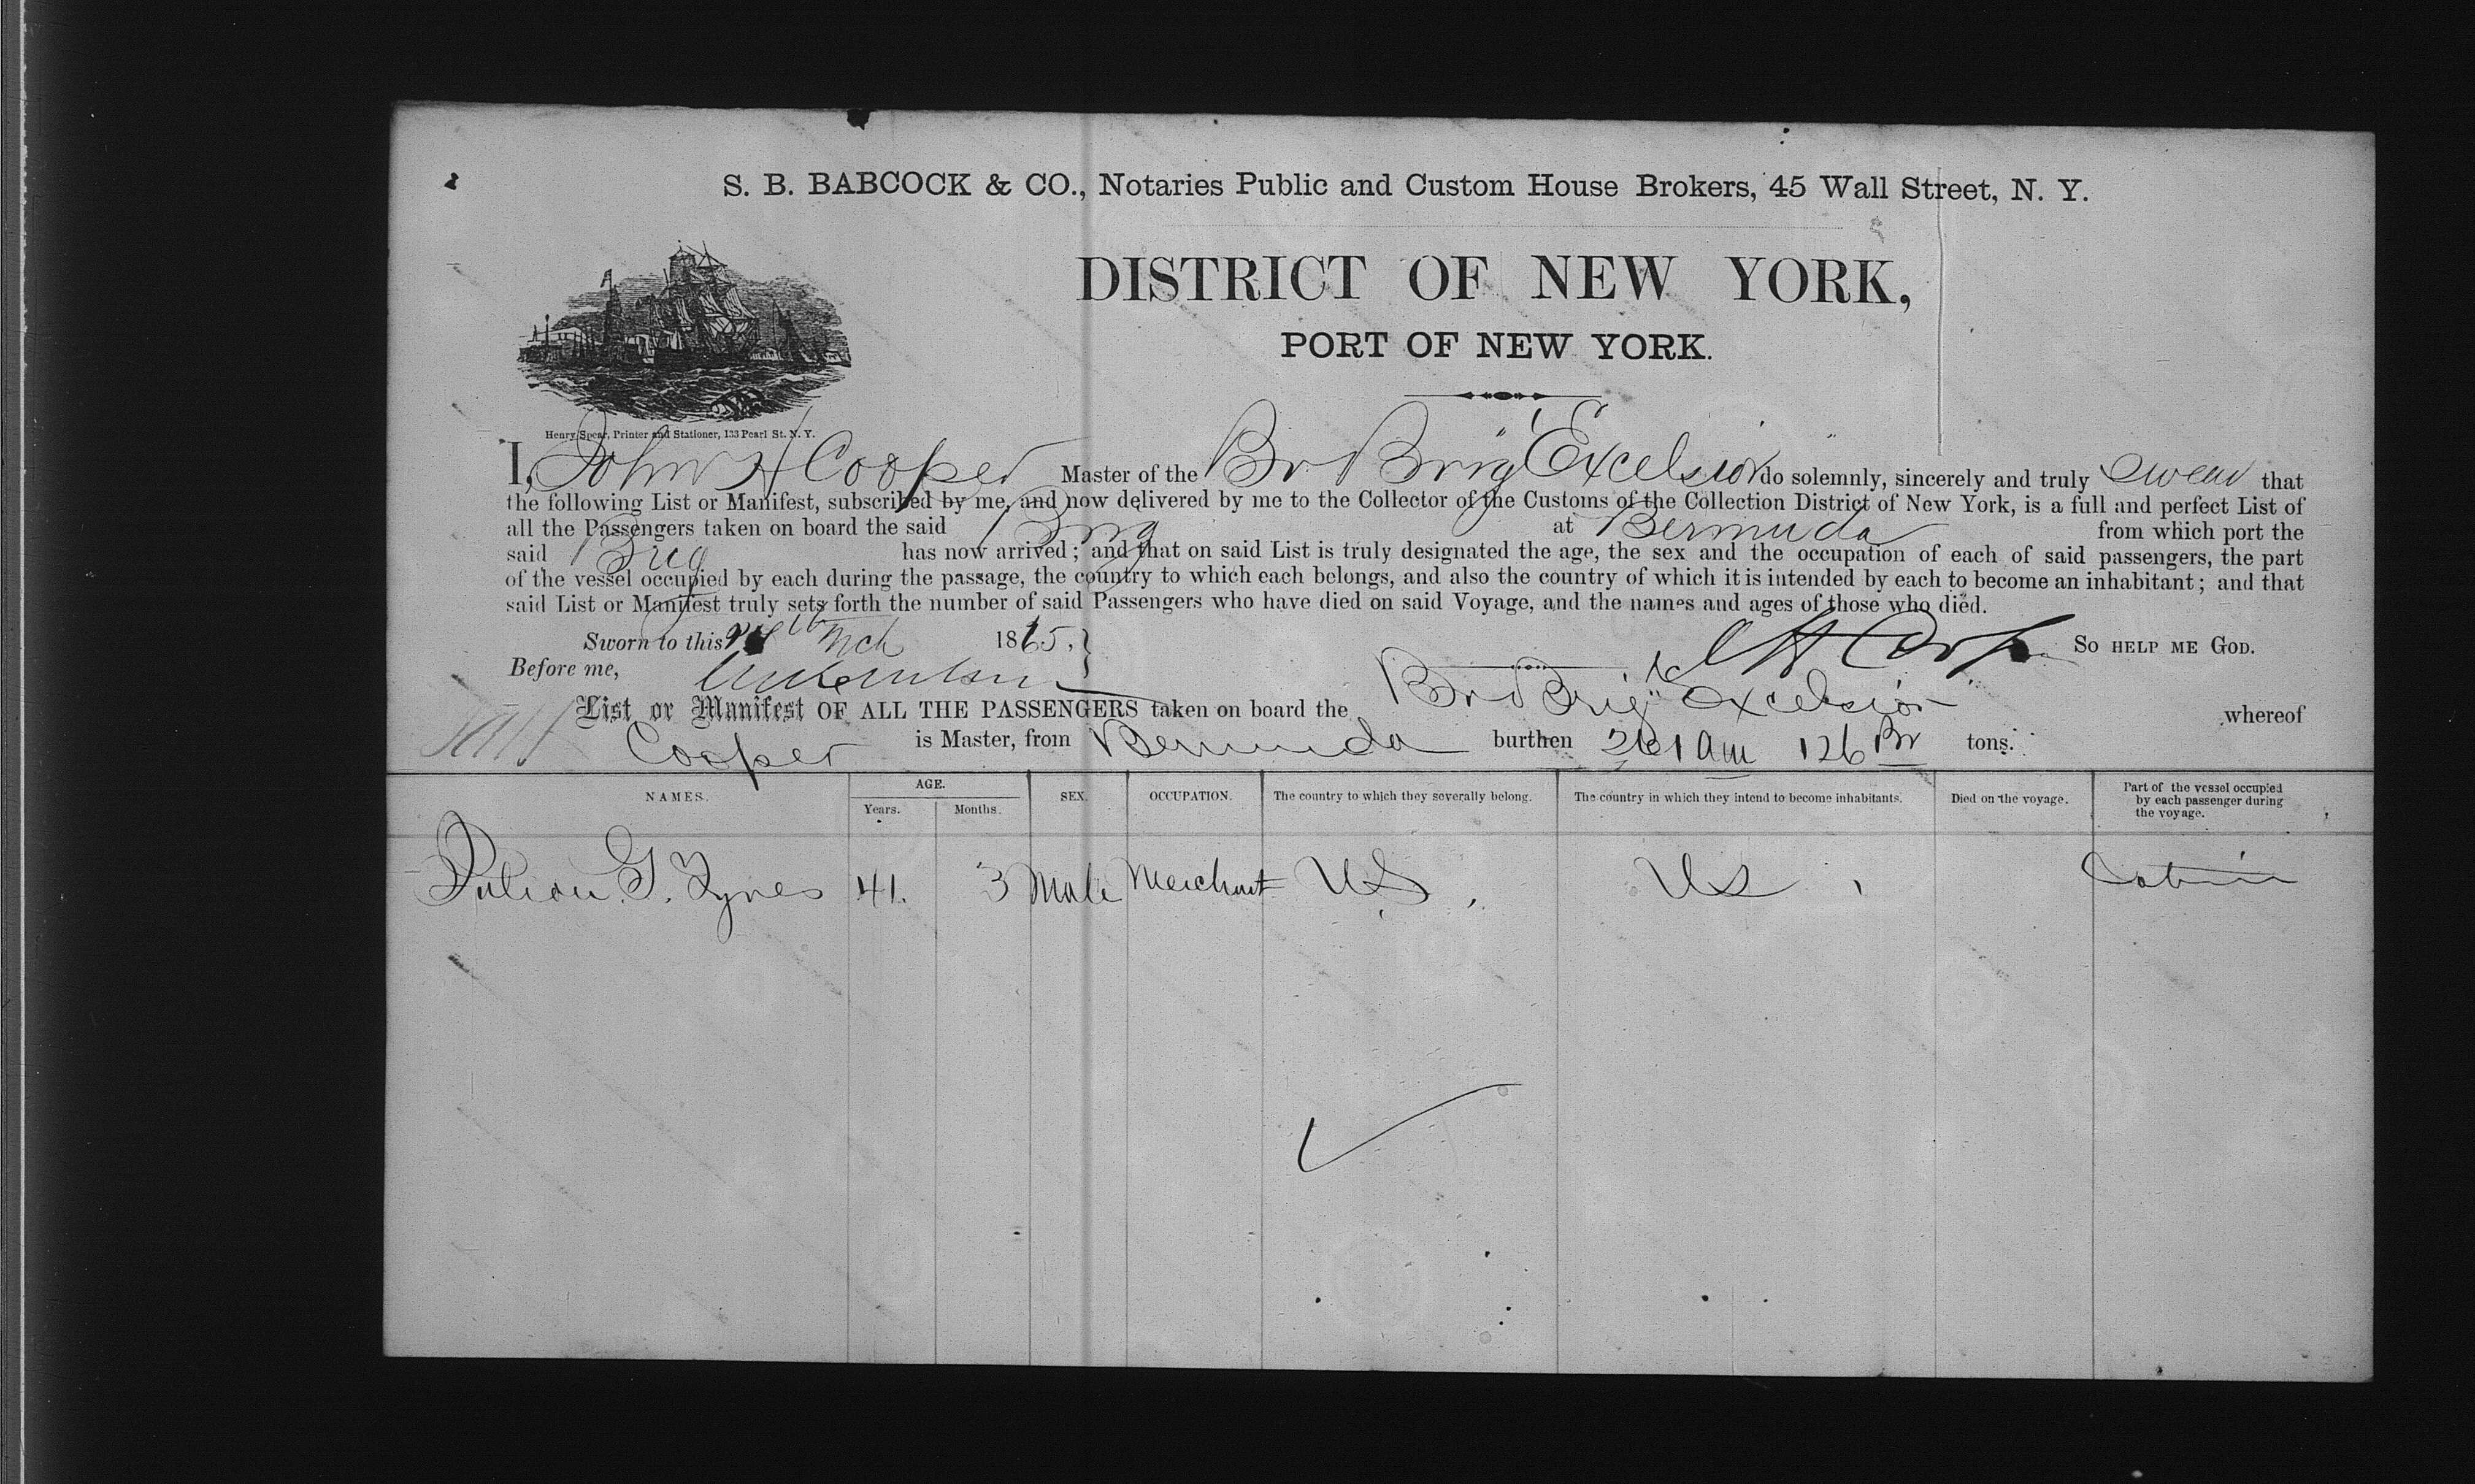 S. B. BABCOCK & CO., Notaries Public and Custom House Brokers, 45 Wall Street, N. Y.
DISTRICT OF NEW YORK,
PORT OF NEW YORK.
Henry Spear, Printer and Stationer, 133 Pearl St. N. Y.
I, John H Cooper Master of the Br. Brig "Excelsior" do solemnly, sincerely and truly swear that
the following List or Manifest, subscribed by me, and now delivered by me to the Collector of the Customs of the Collection District of New York, is a full and perfect List of
all the Passengers taken on board the said Brig at Bermuda from which port the
said Brig has now arrived; and that on said List is truly designated the age, the sex and the occupation of each of said passengers, the part
of the vessel occupied by each during the passage, the country to which each belongs, and also the country of which it is intended by each to become an inhabitant; and that
said List or Manifest truly sets forth the number of said Passengers who have died on said Voyage, and the names and ages of those who died.
Sworn to this Mch 1865. } So help me God.
Before me,
List or Manifest OF ALL THE PASSENGERS taken on board the Br Brig "Excelsior" whereof
Cooper is Master, from Bermuda burthen Am 126 Br tons.
NAMES. AGE. Years. Months. SEX. OCCUPATION. The country to which they severally belong. The country in which they intend to become inhabitants. Died on the voyage. Part of the vessel occupied by each passenger during the voyage.
G. Tynes 41. 3 Male Merchant US. US Cabin